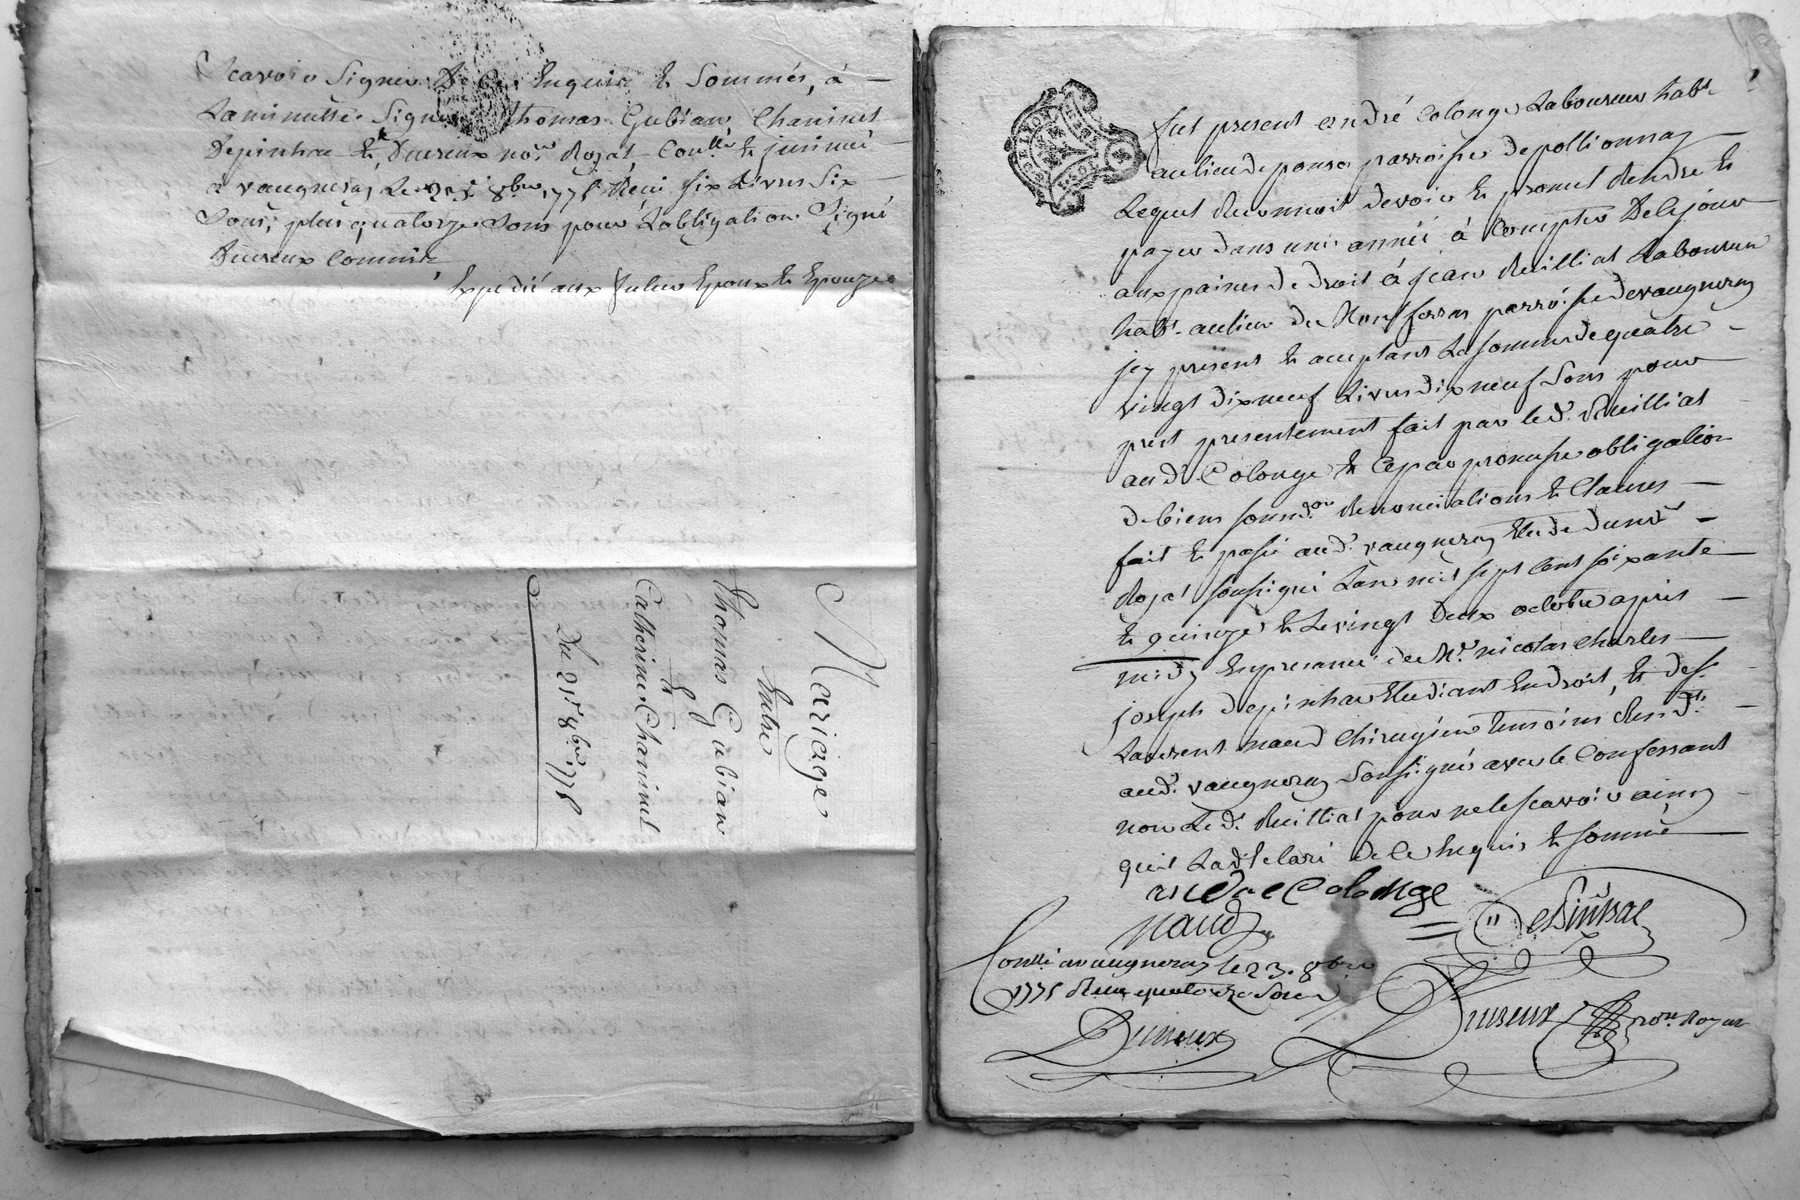 Scavoir Signer De Ce Enquis & Sommés, à —
La minutte Signé Thomas Gubian, Chaninet
Depinhac & Dureux no.re Royal, Con.llé & insinué
à vaugneray Le 23.e 8bre 1775 Receu six Livres Six —
Sous, plus quatorze Sous pour L'obligation Signé
Dureux Commis
Expedié aux futur Epoux & Epouze
Mariage
Entre
Thomas Gubian
&
Catherine Chaninet
Du 21.e 8bre 1775
fut present andré Colonge Laboureur hab.t
au lieu de ponso parroisse de pollionnay —
Lequel Reconnoit devoir & promet Rendre &
payer dans une année à Compter De ce jour
aux paines de droit à jean Reilliat Laboureur
hab.t au lieu de Montferrat parroisse de vaugneray
icy present & acceptant La somme de quatre —
vingt dix neuf Livres dix neuf Sous pour
prest presentement fait par le d.t Reilliat
au d.t Colonge & Ce par promesse obligation
de biens soum.on Renonciations & Clauses —
fait & passé aud.t vaugneray Etude du no.re —
Royal soussigné L'an mil sept Cent soixante
& quinze & Le vingt Deux octobre après —
midy En presence de M.r nicolas Charles —
joseph Depinhac Etudiant En droit, & de S.r
Laurent naud Chirugien temoins Resid.ts —
aud.t vaugneray Soussignés avec le Confessant
non Le d.t Reilliat pour ne le scavoir ainsy —
qu'il L'a declaré de ce Enquis & sommé —
andre Colonge
naud
Depinhac
Con.llé a vaugneray le 23. 8bre
1775 Receu quatorze Sous
Dureux
Dureux no.re Royal